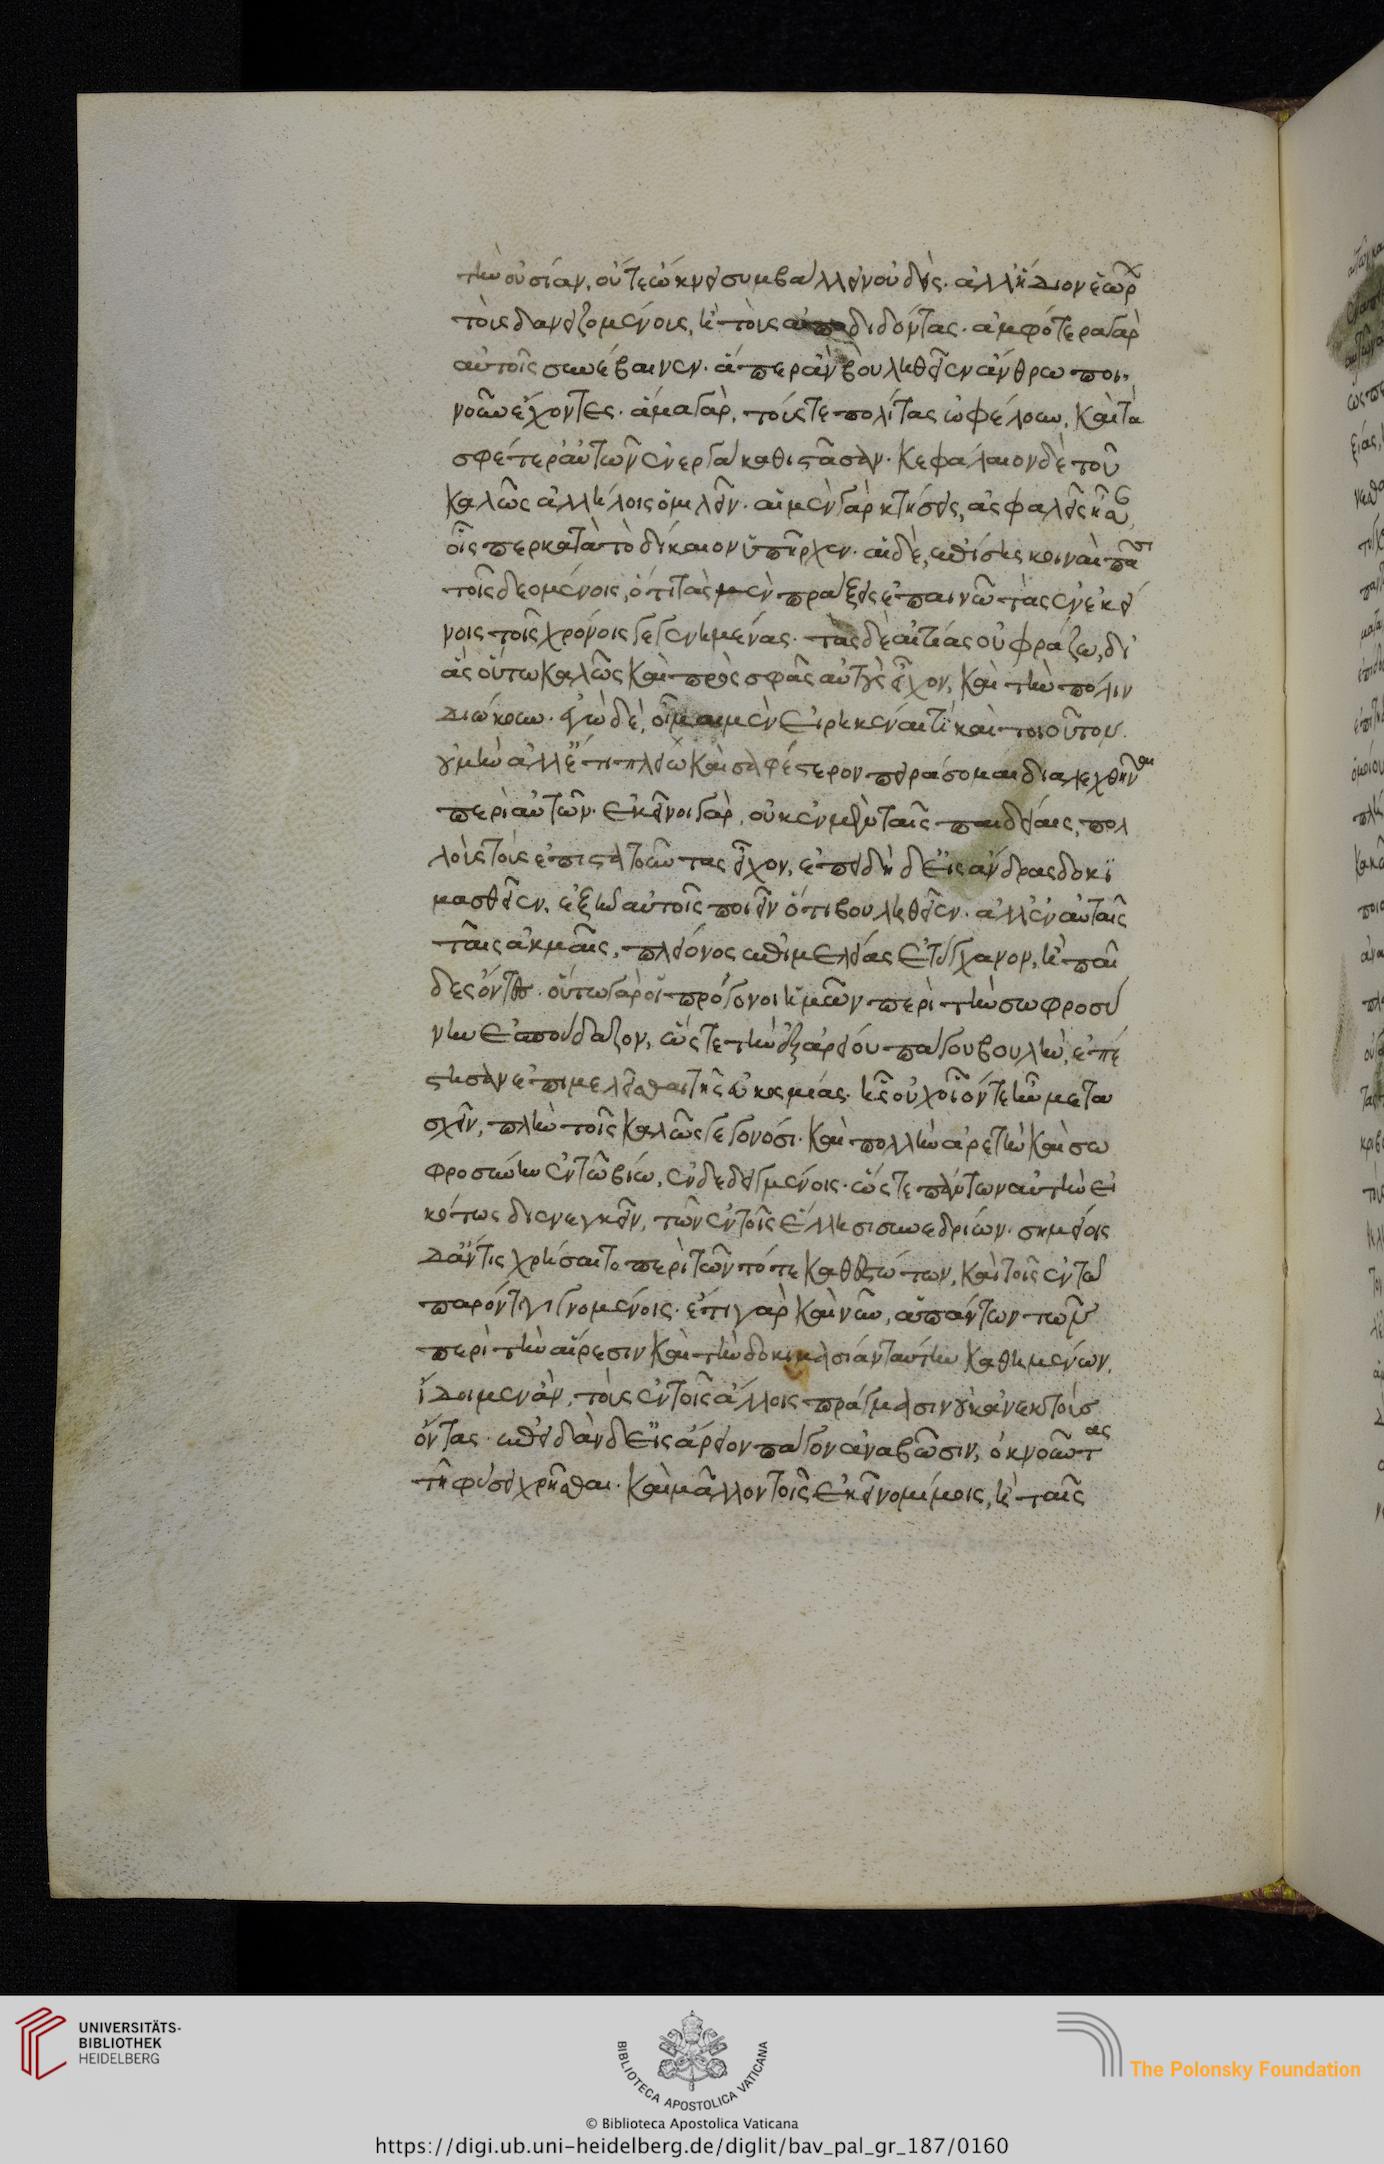 τὴν οὐσίαν, οὔτε ὤκνει συμβάλλειν οὐδείς· ἀλλ' ἥδιον ἑώρων
τοὺς δανειζομένους, ἢ τοὺς ἀποδιδόντας· ἀμφότερα γὰρ
αὐτοῖς συνέβαινεν· ἅπερ ἂν βουληθεῖεν ἄνθρωποι
νοῦν ἔχοντες· ἅμα γὰρ, τούς τε πολίτας ὠφέλουν, καὶ τὰ
σφέτερ' αὐτῶν ἐνεργὰ καθίστασαν· κεφάλαιον δὲ τοῦ
καλῶς ἀλλήλοις ὁμιλεῖν· αἱ μὲν γὰρ κτήσεις, ἀσφαλεῖς ἦσαν
οἷσπερ κατὰ τὸ δίκαιον ὑπῆρχεν· αἱ δὲ, χρήσεις κοιναὶ πᾶσι
τοῖς δεομένοις, ὅτι τὰς μὲν πράξεις ἐπαινῶ τὰς ἐν ἐκεί
νοις τοῖς χρόνοις γεγενημένας· τὰς δὲ αἰτίας οὐ φράζω, δι'
ἃς οὕτω καλῶς καὶ πρὸς σφᾶς αὐτοὺς εἶχον, καὶ τὴν πόλιν
διῴκουν· ἐγὼ δὲ, οἶμαι μὲν εἰρηκέναι τὶ καὶ τοιοῦτον·
οὐ μὴν ἀλλ' ἔτι πλείω καὶ σαφέστερον πειράσομαι διαλεχθῆναι
περὶ αὐτῶν· ἐκεῖνοι γὰρ, οὐκ ἐν μὲν ταῖς παιδείαις, πολ
λοὺς τοὺς ἐπιστατοῦντας εἶχον, ἐπειδὴ δ' εἰς ἄνδρας δοκι
μασθεῖεν, ἐξῆν αὐτοῖς ποιεῖν ὅτι βουληθεῖεν· ἀλλ' ἐν αὐταῖς
ταῖς ἀκμαῖς, πλείονος ἐπιμελείας ἐτύγχανον, ἢ παῖ
δες ὄντες· οὕτω γὰρ οἱ πρόγονοι ἡμῶν περὶ τὴν σωφροσύ
νην ἐσπούδαζον, ὥστε τὴν ἐξ ἀρείου πάγου βουλὴν, ἐπέ
στησαν ἐπιμελεῖσθαι τῆς εὐκοσμίας· ἧς οὐχ οἷόν τε ἦν μετα
σχεῖν, πλὴν τοῖς καλῶς γεγονόσι· καὶ πολλὴν ἀρετὴν καὶ σω
φροσύνην ἐν τῷ βίῳ, ἐνδεδειγμένοις· ὥστε πάντων αὐτὴν εἰ
κότως διενεγκεῖν, τῶν ἐν τοῖς ἕλλησι συνεδρίων· σημείοις
δ' ἄν τις χρήσαιτο περὶ τῶν τότε καθεστώτων, καὶ τοῖς ἐν τῷ
παρόντι γιγνομένοις· ἔτι γὰρ καὶ νῦν, ἁπάντων τῶν
περὶ τὴν αἵρεσιν καὶ τὴν δοκιμασίαν ταύτην καθημένων,
ἴδοιμεν ἂν, τοὺς ἐν τοῖς ἄλλοις πράγμασιν οὐκ ἀνεκτοὺς
ὄντας· ἐπειδὰν δ' εἰς ἄρειον πάγον ἀναβῶσιν, ὀκνοῦντας
τῇ φύσει χρῆσθαι· καὶ μᾶλλον τοῖς ἐκεῖ νομίμοις, ἢ ταῖς
UNIVERSITÄTS-
BIBLIOTHEK
HEIDELBERG
BIBLIOTECA APOSTOLICA VATICANA
The Polonsky Foundation
© Biblioteca Apostolica Vaticana
https://digi.ub.uni-heidelberg.de/diglit/bav_pal_gr_187/0160